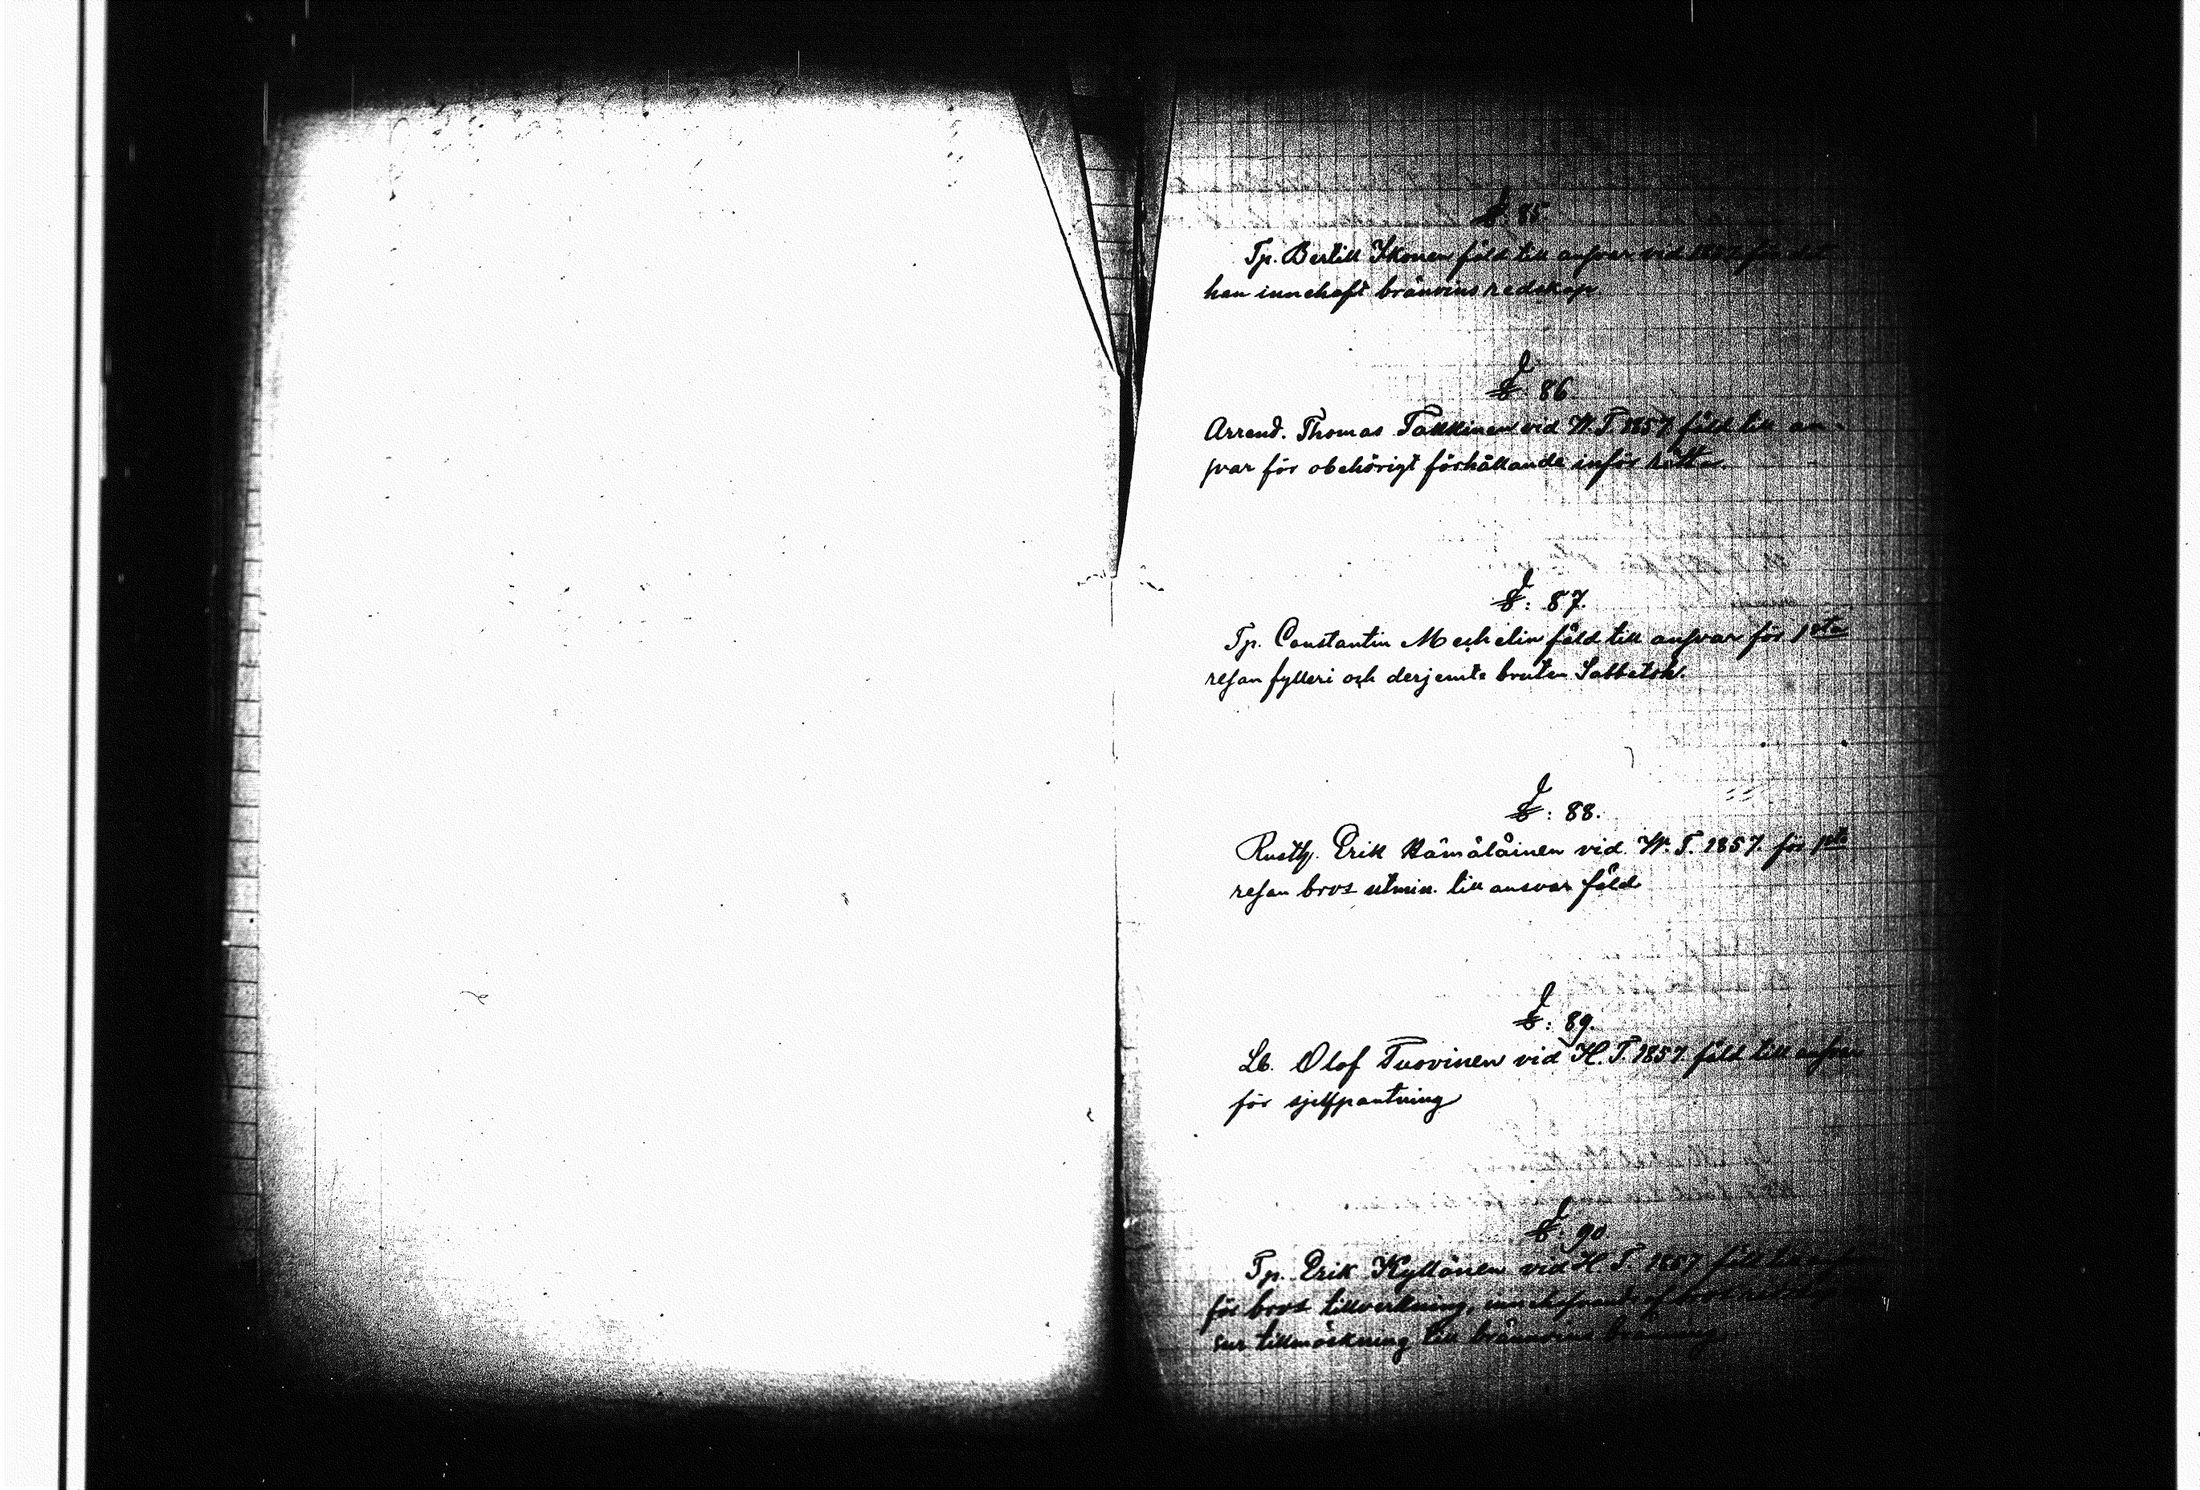 §. 85.
Tp. Bertill Ikonen fäld till ansvar vid 1857 för det
han innehaft bränvins redskap.
§. 86.
Arrend. Thomas Takkinen vid W. T. 1857 fäld till an-
svar för obehörigt förhållande inför rätta.
§: 87.
Tp. Constantin Mechelin fäld till ansvar för 1sta
resan fylleri och derjemte bruten Sabbatsh.
§: 88.
Rusth. Erik Hämäläinen vid W. T. 1857 för 1sta
resan brvs utmin. till ansvar fäld
§: 89.
Lb. Olof Tuovinen vid H. T. 1857 fäld till ansvar
för sjelfpantning
§: 90
Tp. Erik Kyllönen vid H T. 1857 fäld till
för brvs tillverkning,
till bränvins bränning